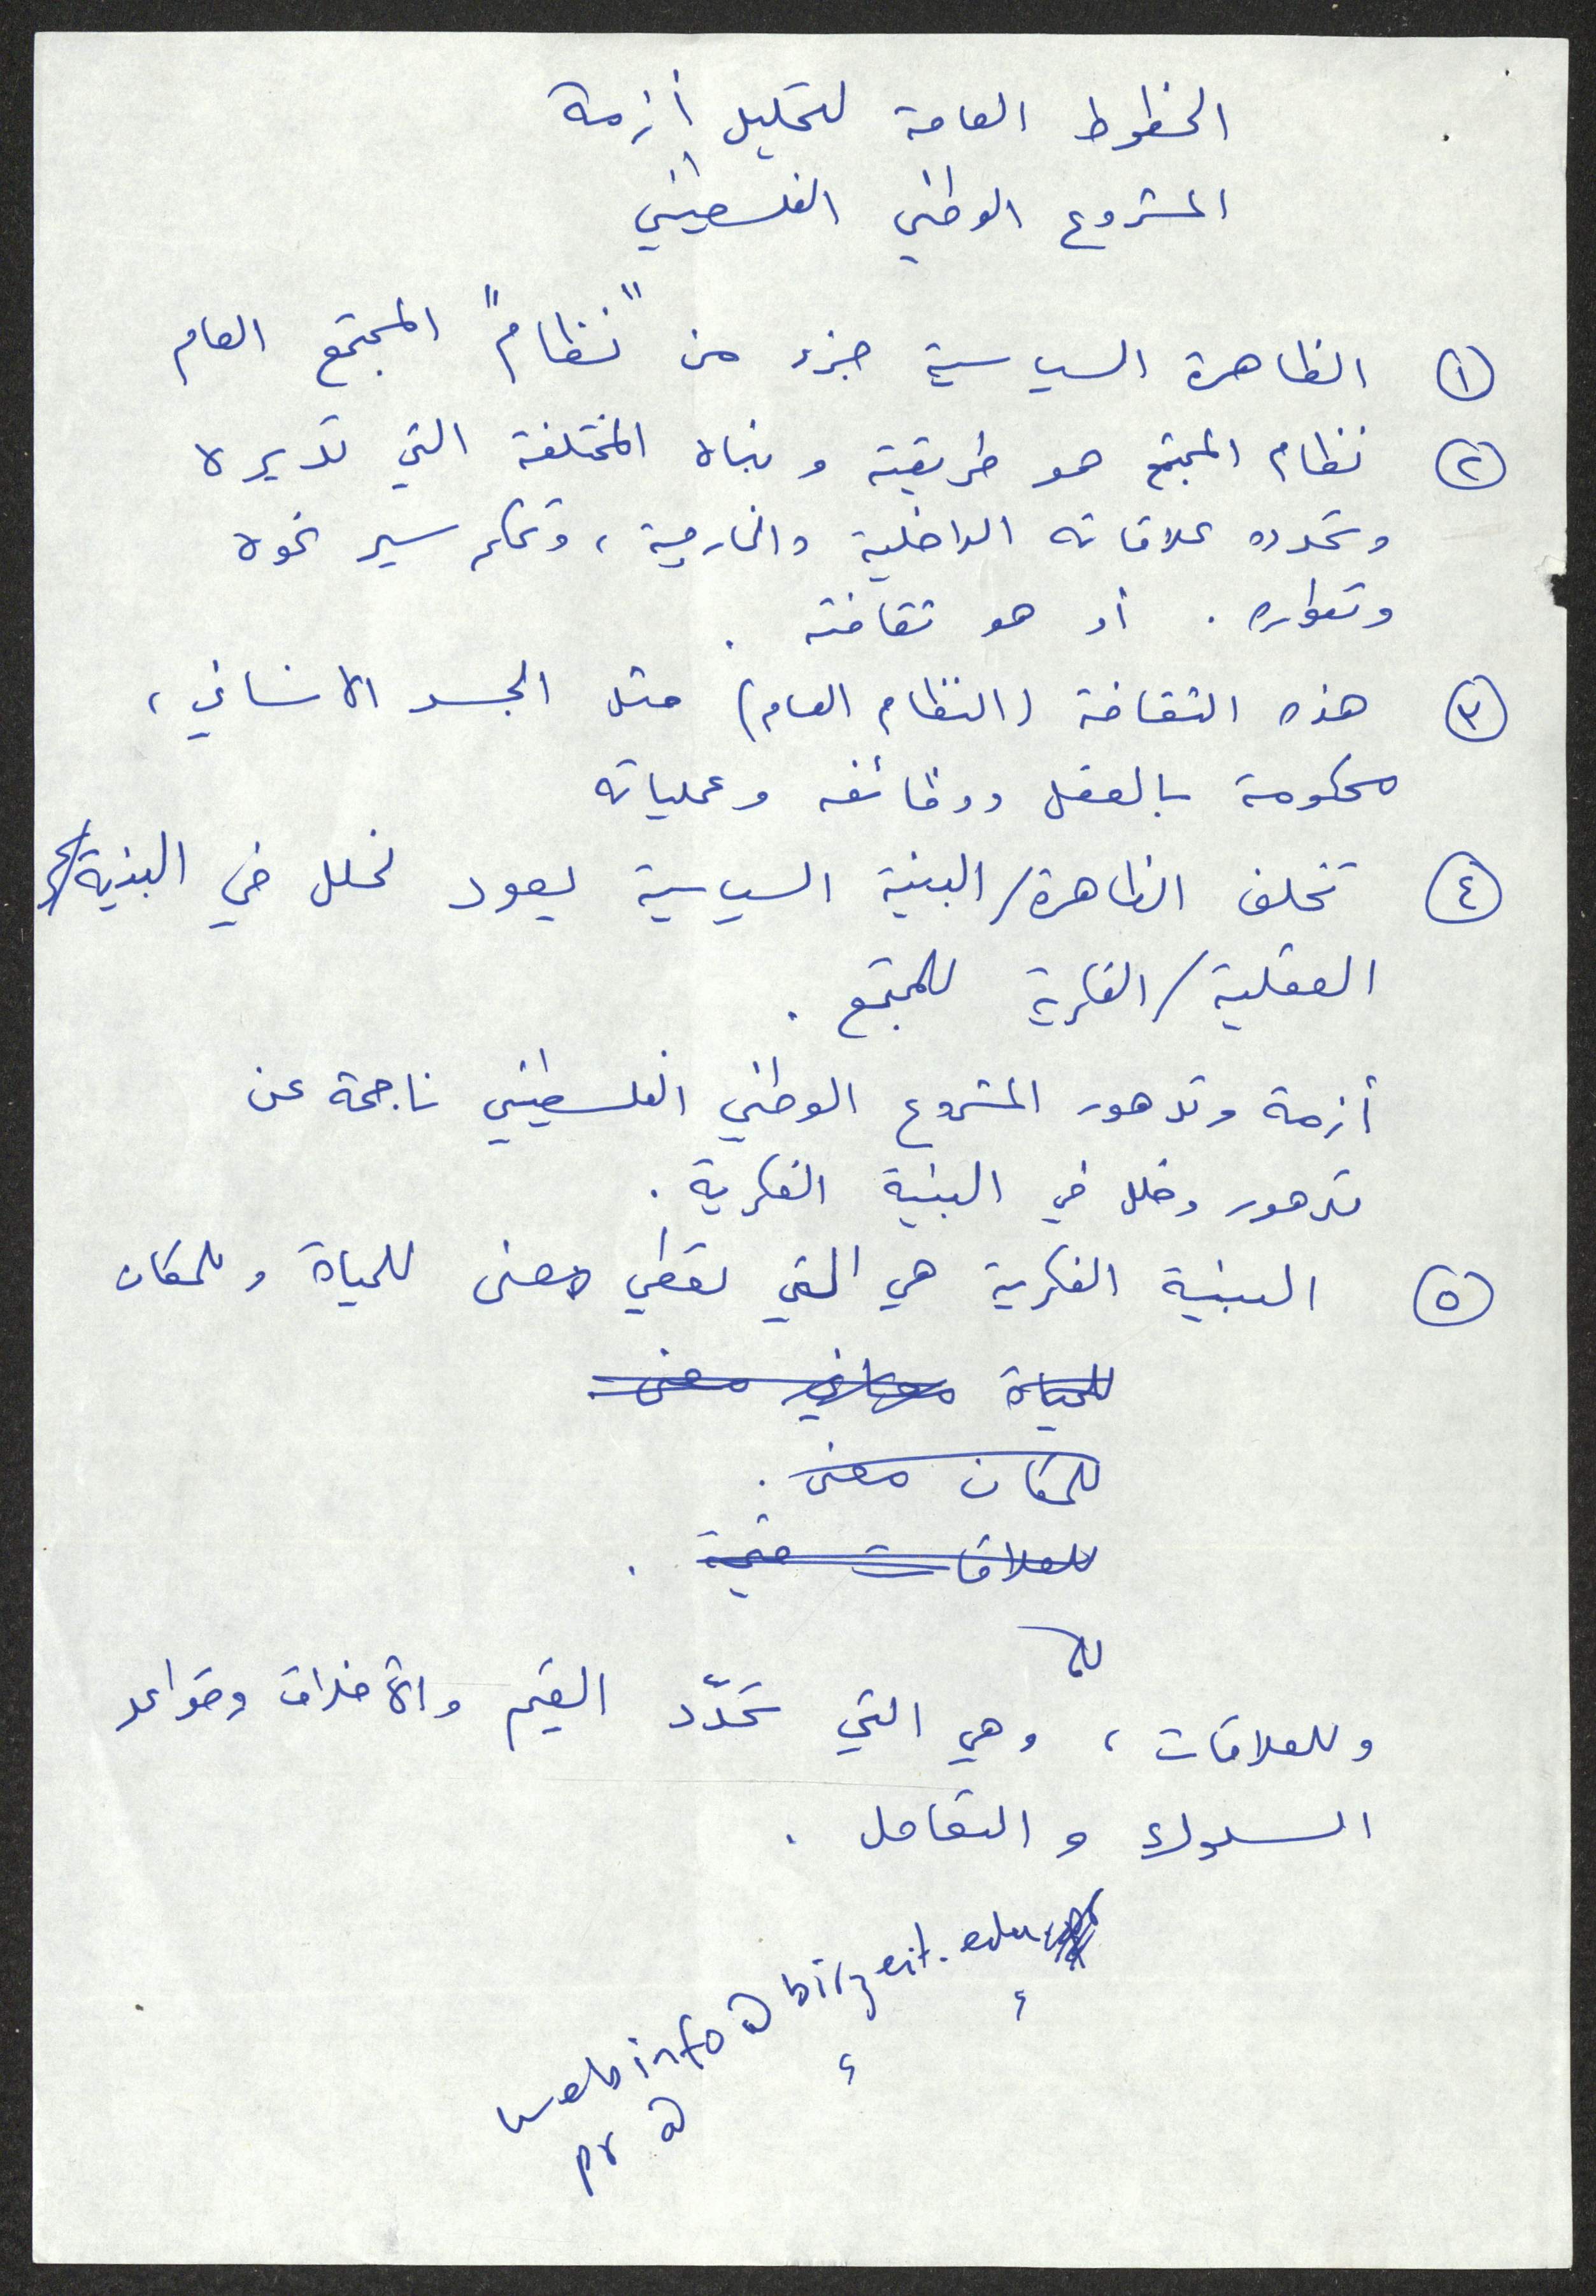 الخطوط العامة لتحليل أزمة
المشروع الوطني الفلسطيني
١ الظاهرة السياسية جزء من "نظام" المجتمع العام
٢ نظام المجتمع هو طريقته وبناه المختلفة التي تديره
وتحدد علاقاته الداخلية والخارجية، وتحكم سير نموه
وتطوره. أو هو ثقافته.
٣ هذه الثقافة (النظام العام) مثل الجسد الانساني،
محكومة بالعقل ووظائفه وعملياته
٤ تخلف الظاهرة/البنية السياسية يعود لخلل في البنية/
العقلية/الفكرية للمجتمع.
أزمة وتدهور المشروع الوطني الفلسطيني ناجمة عن
تدهور وخلل في البنية الفكرية.
٥ البنية الفكرية هي التي تعطي معنى للحياة وللمكان
للحياة معنى
للمكان معنى.
للعلاقات قيمة.
للا
وللعلاقات، وهي التي تحدّد القيم والأخلاق وقواعد
السلوك والتعامل.
webinfo@birzeit.edu
pr @